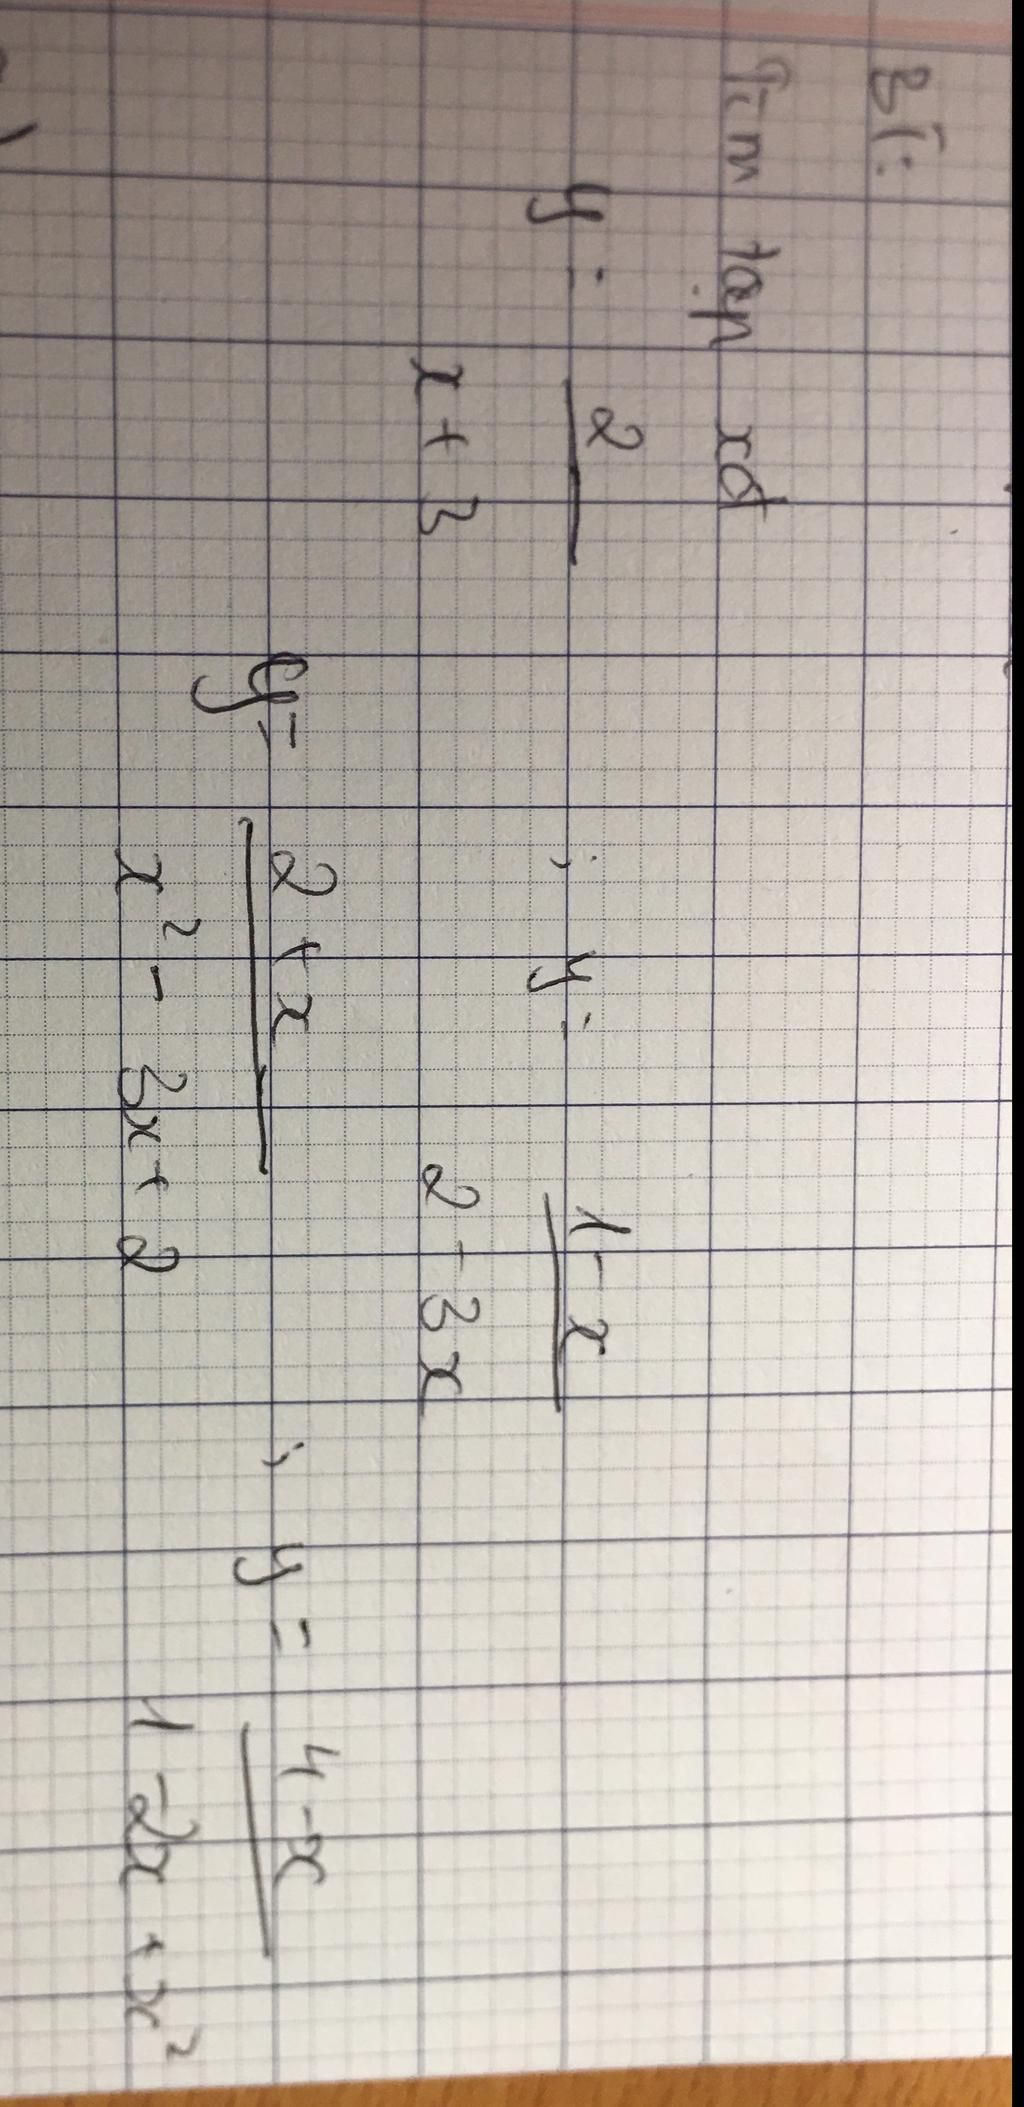 B1:
Tìm tập xđ
y = 2/(x + 3) ; y = (1 - x)/(2 - 3x)
y = (2 + x)/(x² - 3x + 2) ; y = (4 - x)/(1 - 2x + x²)